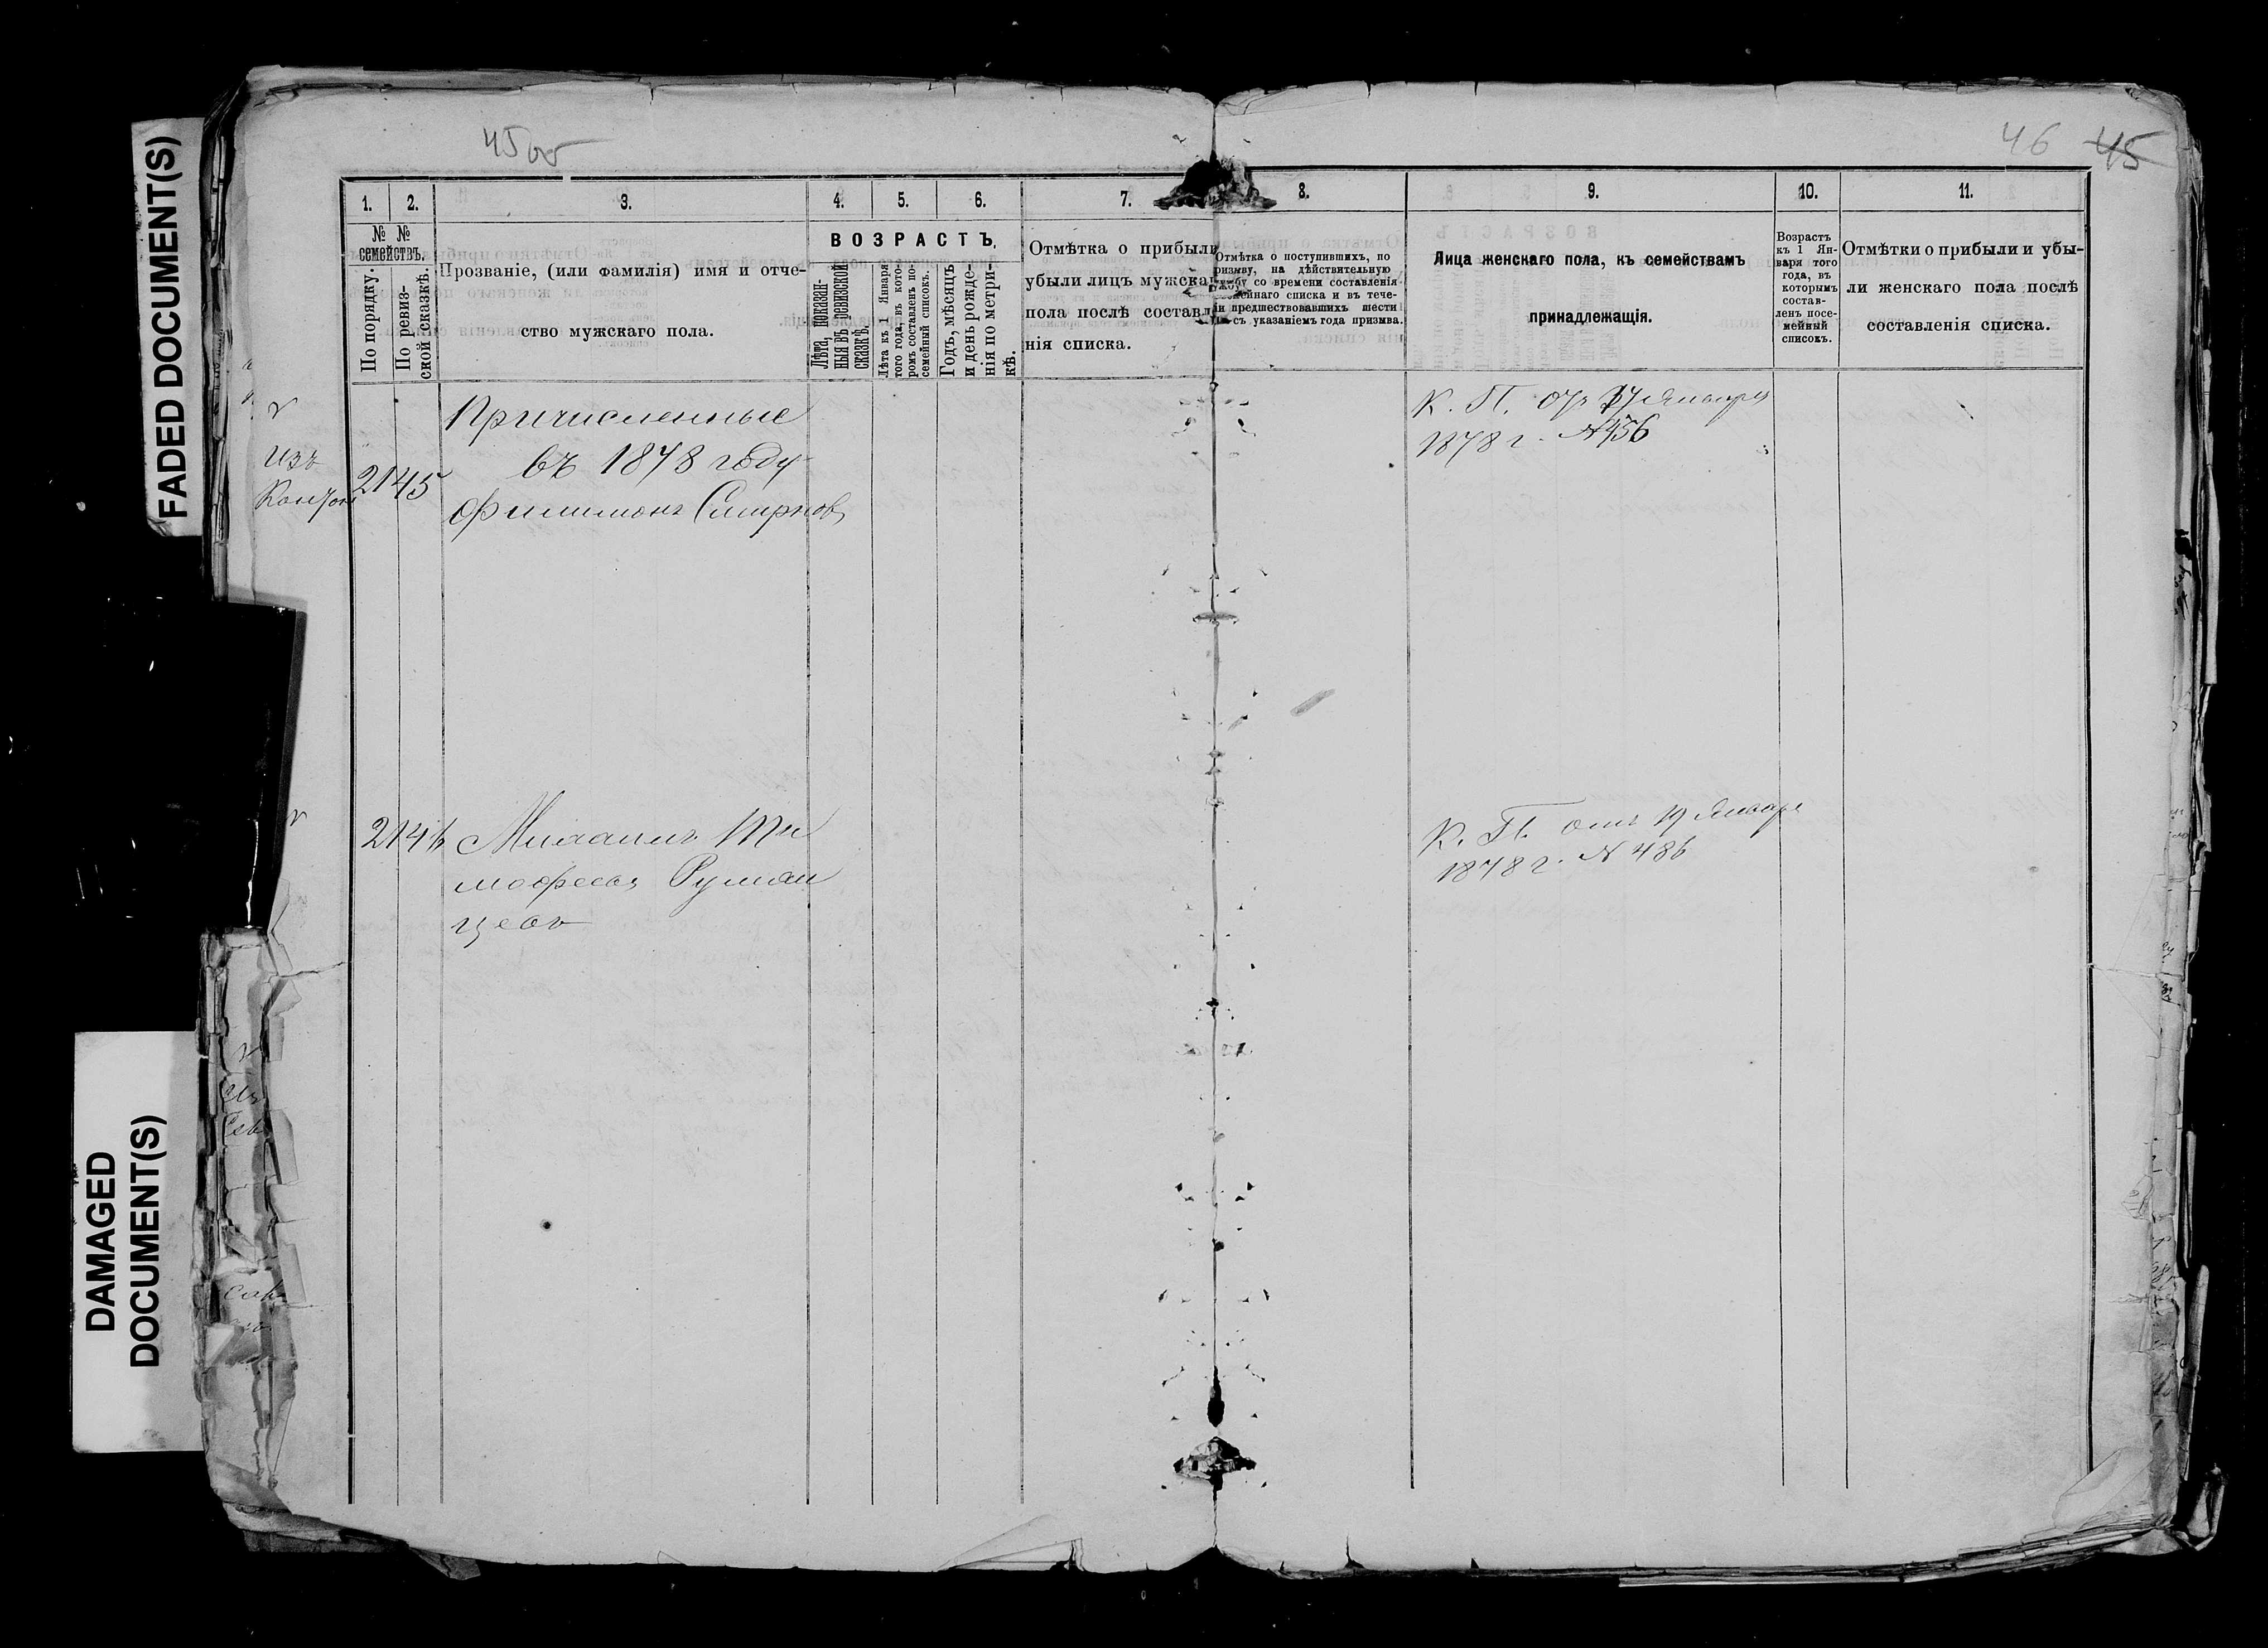 FADED DOCUMENT(S)
DAMAGED
DOCUMENT(S)
45об
46 45
1. 2. 3. 4. 5. 6. 7.
№ №
семействъ.
По порядку.
По ревиз-
ской сказкѣ.
Прозваніе, (или фамилія) имя и отче-
ство мужскаго пола.
ВОЗРАСТЪ.
Лѣта, показан-
ныя въ ревизской
сказкѣ.
Лѣта къ 1 Января
того года, въ кото-
ромъ составленъ по-
семейный списокъ.
Годъ, мѣсяцъ
и день рожде-
нія по метри-
кѣ.
Отмѣтка о прибыли
убыли лицъ мужска
пола послѣ составл
нія списка.
8. 9. 10. 11.
Отмѣтка о поступившихъ, по
ризыву, на дѣйствительную
со времени составленія
списка и въ тече-
предшествовавшихъ шести
съ указаніемъ года призыва.
Лица женскаго пола, къ семействамъ
принадлежащія.
Возрастъ
къ 1 Ян-
варя того
года, въ
которымъ
состав-
ленъ посе-
мейный
списокъ.
Отмѣтки о прибыли и убы-
ли женскаго пола послѣ
составленія списка.
Причисленные
въ 1878 году
изъ
2145
Филимонъ Смирновъ
К. П. отъ Января
1878 г. №456
2146 Михаилъ Ти
мофеевъ Румян
цевъ
К. П. отъ 19 Января
1878 г. № 486